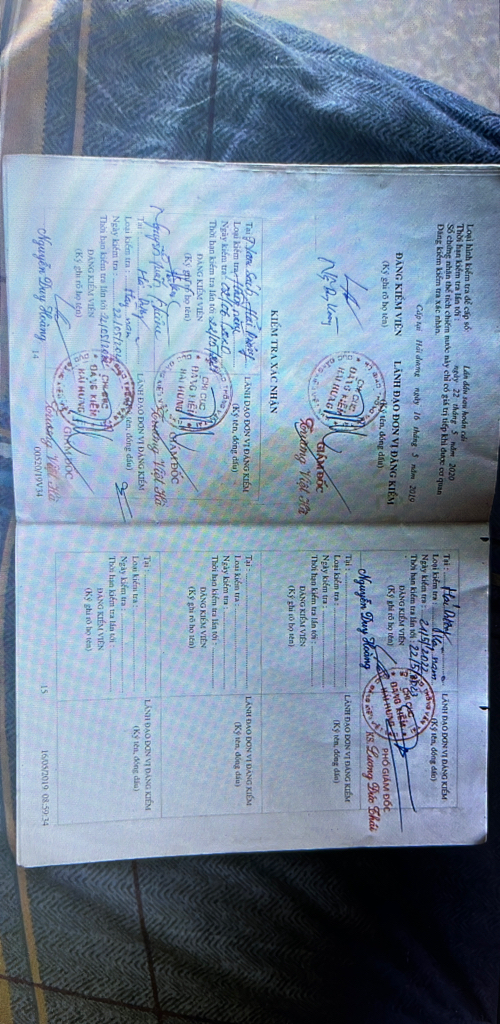 Loại hình kiểm tra để cấp sổ: Lần đầu sau hoán cải
Thời hạn kiểm tra lần tới: ngày 22 tháng 5 năm 2020
Sổ chứng nhận thể tích chiếm nước này chỉ có giá trị tiếp khi được cơ quan
Đăng kiểm kiểm tra xác nhận.
Cấp tại Hải dương ngày 16 tháng 5 năm 2019
ĐĂNG KIỂM VIÊN LÃNH ĐẠO ĐƠN VỊ ĐĂNG KIỂM
(Ký ghi rõ họ tên) (Ký tên, đóng dấu)
CHI CỤC
ĐĂNG KIỂM
HẢI HƯNG
GIÁM ĐỐC
Trương Việt Hà
KIỂM TRA XÁC NHẬN
Tại
Loại kiểm tra
Ngày kiểm tra
Thời hạn kiểm tra lần tới
ĐĂNG KIỂM VIÊN
(Ký ghi rõ họ tên)
LÃNH ĐẠO ĐƠN VỊ ĐĂNG KIỂM
(Ký tên, đóng dấu)
CHI CỤC
ĐĂNG KIỂM
HẢI HƯNG
GIÁM ĐỐC
Trương Việt Hà
Tại :
Loại kiểm tra : Hàng năm
Ngày kiểm tra :
Thời hạn kiểm tra lần tới
ĐĂNG KIỂM VIÊN
(Ký ghi rõ họ tên)
LÃNH ĐẠO ĐƠN VỊ ĐĂNG KIỂM
(Ký tên, đóng dấu)
CHI CỤC
ĐĂNG KIỂM
HẢI HƯNG
GIÁM ĐỐC
Trương Việt Hà
Nguyễn Duy Hoàng
14
002019V34
Tại :
Loại kiểm tra : Hàng năm
Ngày kiểm tra : 24/5/2022
Thời hạn kiểm tra lần tới : 22/5/2023
ĐĂNG KIỂM VIÊN
(Ký ghi rõ họ tên)
Nguyễn Duy Hoàng
LÃNH ĐẠO ĐƠN VỊ ĐĂNG KIỂM
(Ký tên, đóng dấu)
CHI CỤC
ĐĂNG KIỂM
HẢI HƯNG
PHÓ GIÁM ĐỐC
KS. Lương Đức Thái
Tại :
Loại kiểm tra :
Ngày kiểm tra :
Thời hạn kiểm tra lần tới :
ĐĂNG KIỂM VIÊN
(Ký ghi rõ họ tên)
LÃNH ĐẠO ĐƠN VỊ ĐĂNG KIỂM
(Ký tên, đóng dấu)
Tại :
Loại kiểm tra :
Ngày kiểm tra :
Thời hạn kiểm tra lần tới :
ĐĂNG KIỂM VIÊN
(Ký ghi rõ họ tên)
LÃNH ĐẠO ĐƠN VỊ ĐĂNG KIỂM
(Ký tên, đóng dấu)
Tại :
Loại kiểm tra :
Ngày kiểm tra :
Thời hạn kiểm tra lần tới :
ĐĂNG KIỂM VIÊN
(Ký ghi rõ họ tên)
LÃNH ĐẠO ĐƠN VỊ ĐĂNG KIỂM
(Ký tên, đóng dấu)
15
16/05/2019 08:59:34